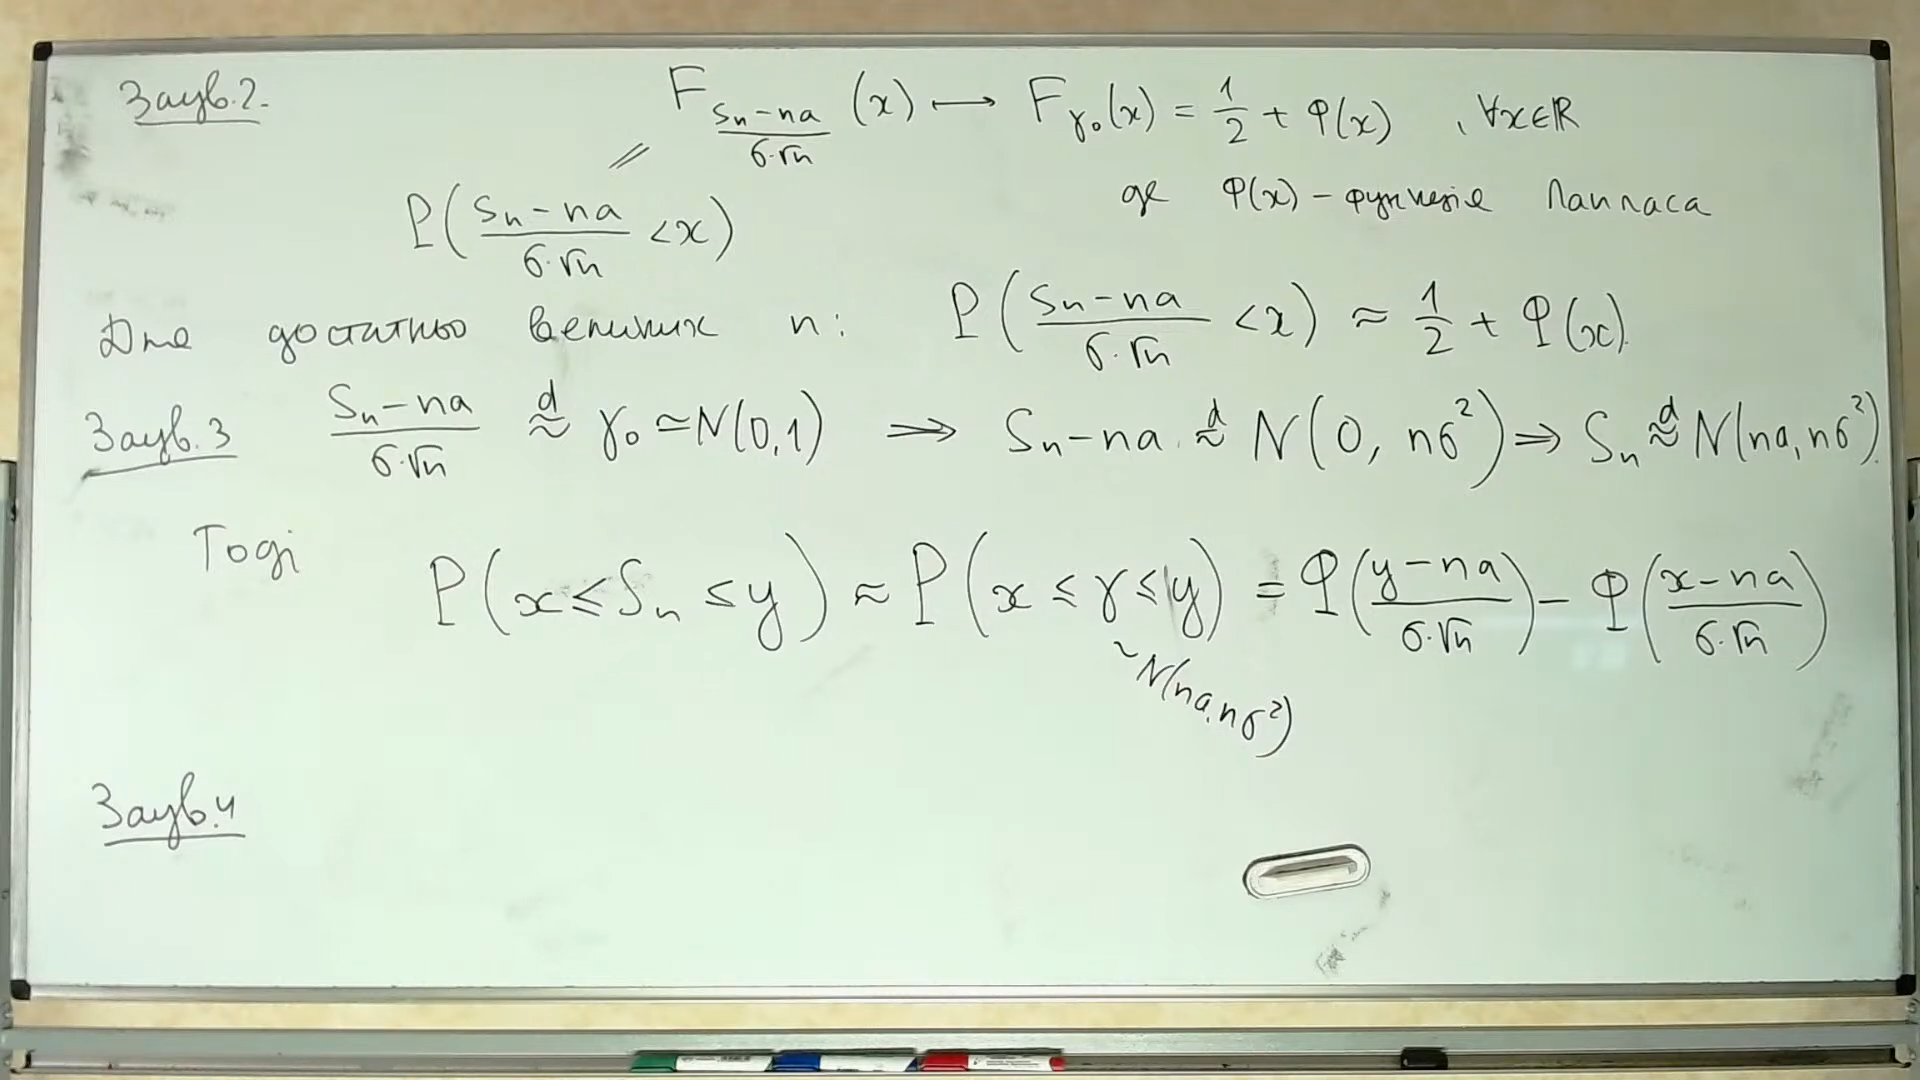 Заув.2. F_{(Sn-na)/(σ·√n)} (x) ⟼ F_{γ₀}(x) = 1/2 + Φ(x) , ∀x∈ℝ
P( (Sn-na)/(σ·√n) < x ) де Φ(x) – функція Лапласа
Для достатньо великих n: P( (Sn-na)/(σ·√n) < x ) ≈ 1/2 + Φ(x).
Заув.3 (Sn-na)/(σ·√n) ≈^d γ₀ ≃ N(0,1) ⟹ Sn-na ≈^d N(0, nσ²) ⟹ Sn ≈^d N(na, nσ²).
Тоді P( x ≤ Sn ≤ y ) ≈ P( x ≤ γ ≤ y ) = Φ( (y-na)/(σ·√n) ) – Φ( (x-na)/(σ·√n) )
~N(na, nσ²)
Заув.4